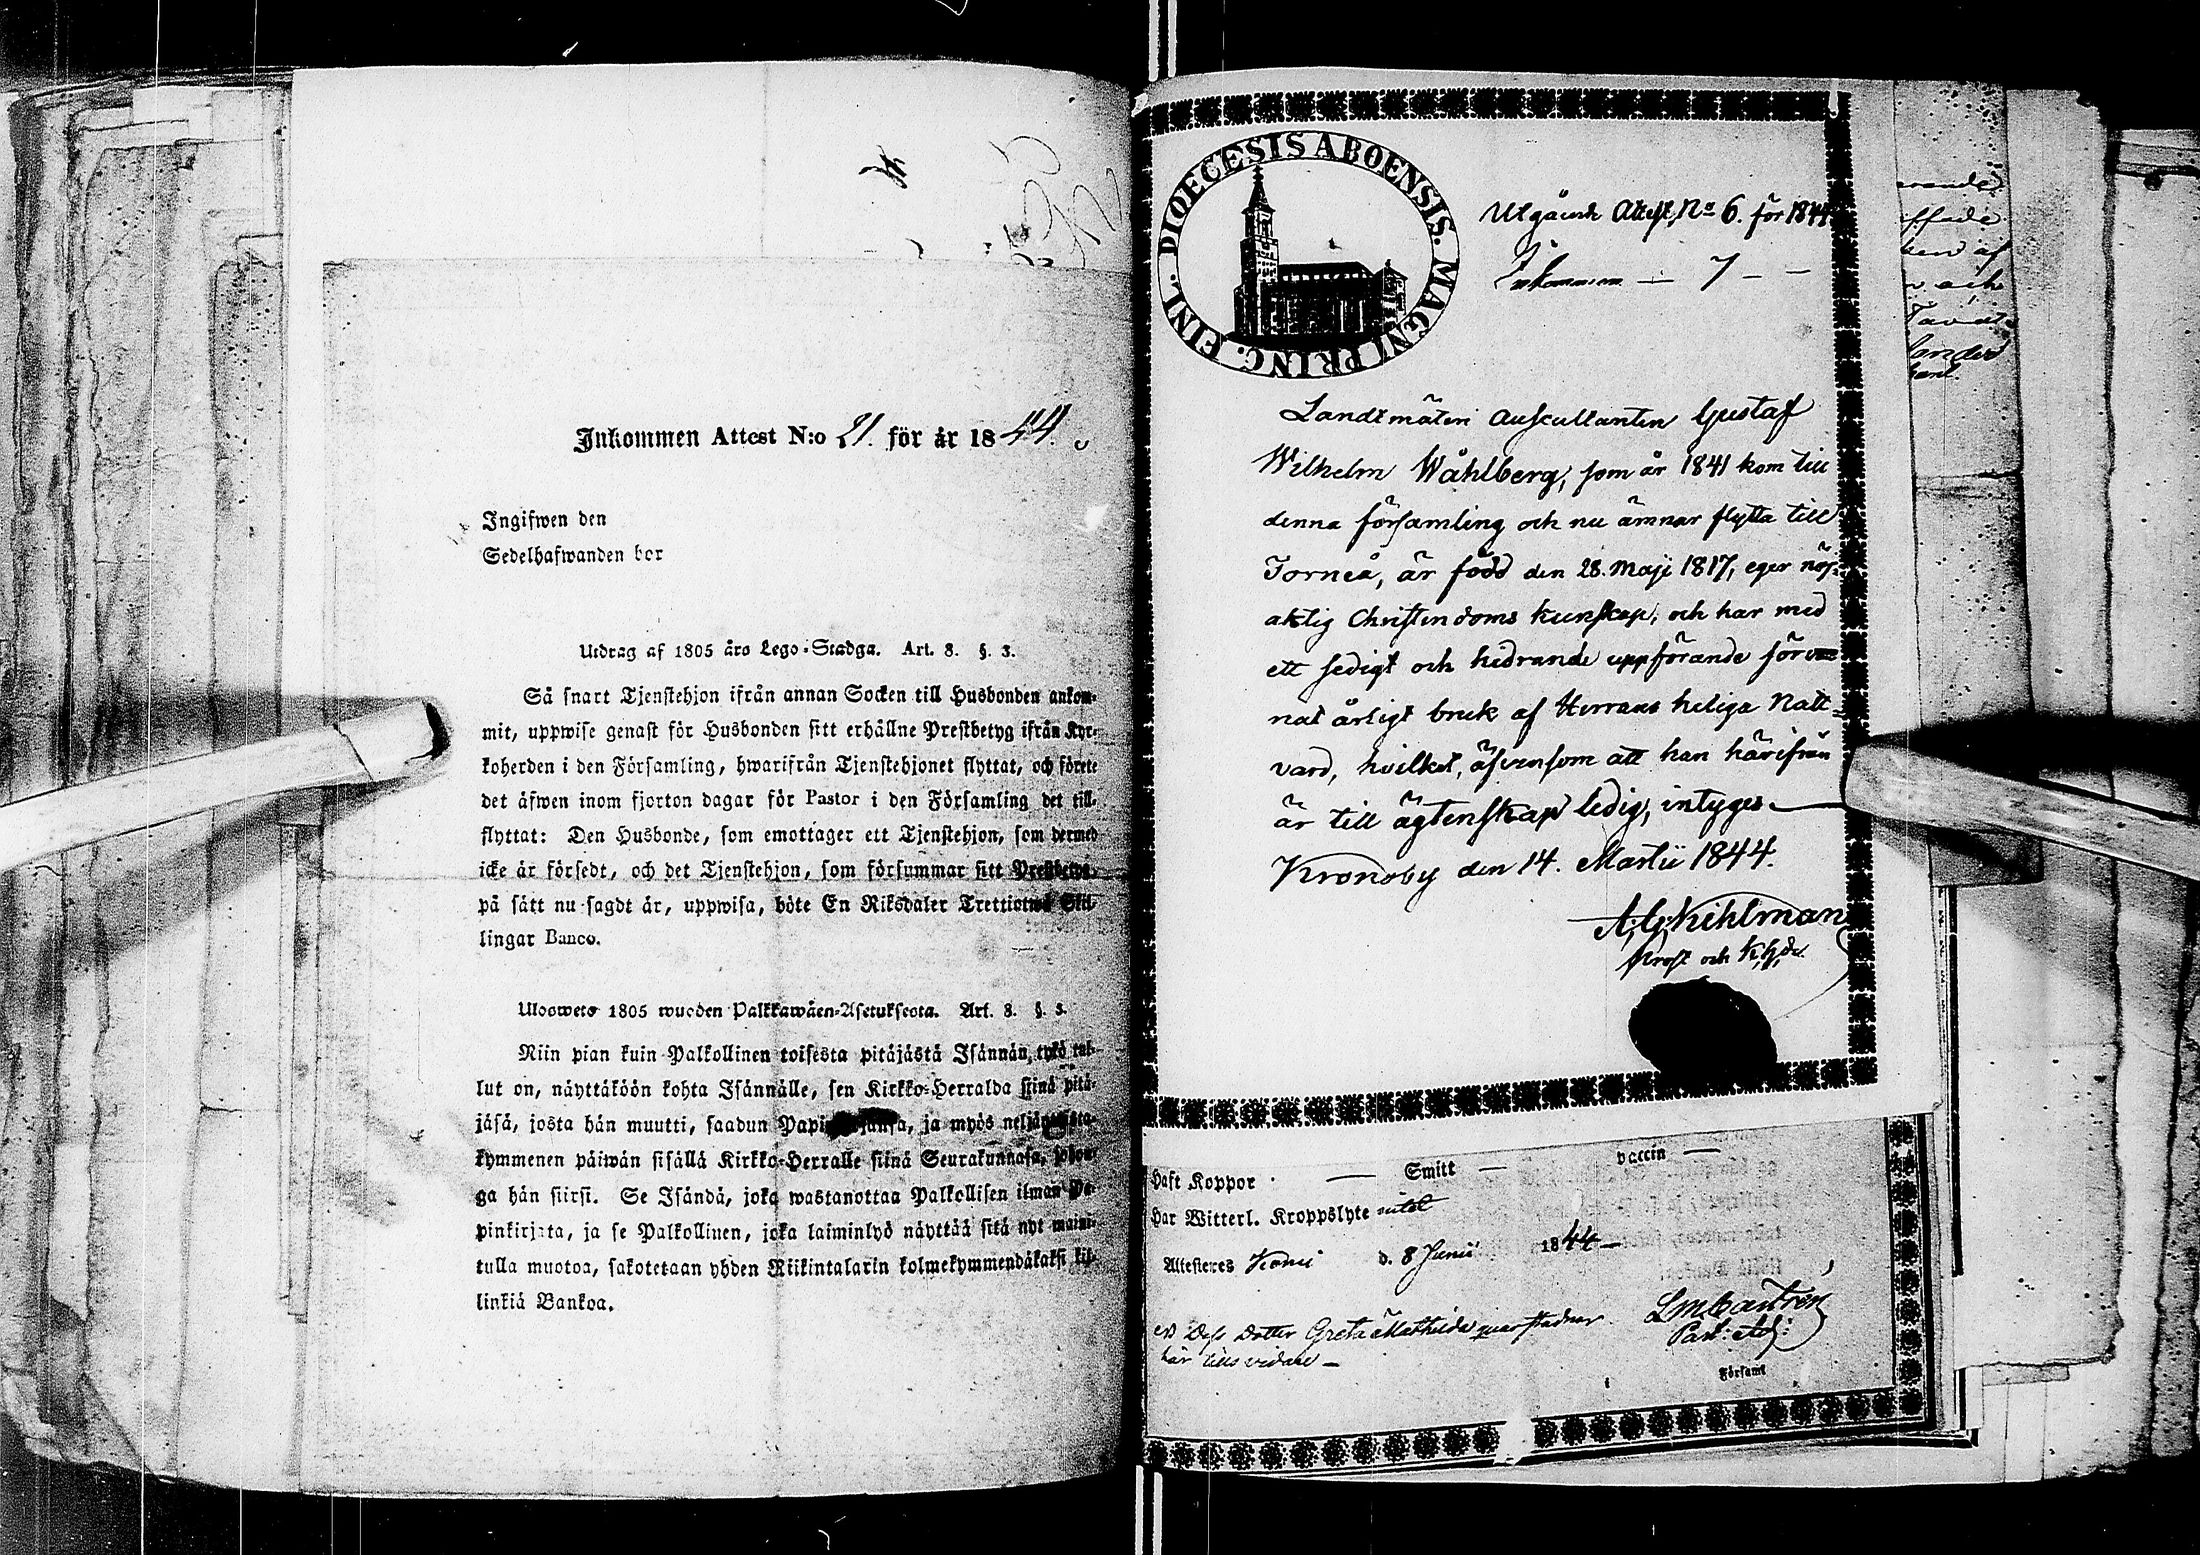 Inkommen Attest N:o 21. för år 1844.
Ingifwen den
Sedelhafwanden bor
Utdrag af 1805 års Lego-Stadga. Art. 8. §. 3.
Så snart Tjenstehjon ifrån annan Socken till Husbonden ankom-
mit, uppwise genast för Husbonden sitt erhållne Prestbetyg ifrån Kyr-
koherden i den Församling, hwarifrån Tjenstehjonet flyttat, och förete
det äfwen inom fjorton dagar för Pastor i den Församling det till-
flyttat: Den Husbonde, som emottager ett Tjenstehjon, som dermed
icke är försedt, och det Tjenstehjon, som försummar sitt Prestbetyg,
på sätt nu sagdt är, uppwisa, böte En Riksdaler Trettiotwå Skil-
lingar Banco.
Ulosweto 1805 wuoden Palkkawäen-Asetuksesta. Art. 8. §. 3.
Niin pian kuin Palkollinen toisesta pitäjästä Isännän, tykö tul-
lut on, näyttäköön kohta Isännälle, sen Kirkko-Herralda siinä pitä-
jäsä, josta hän muutti, saadun ja myös
kymmenen päiwän sisällä Kirkko-Herralle siinä Seurakunnasa, johon-
ga hän siirsi. Se Isändä, joka wastanottaa Palkollisen ilman Pa-
pinkirjata, ja se Palkollinen, joka laiminlyö näyttää sitä nyt maini-
tulla muotoa, sakotetaan yhden Riikintalarin kolmekymmendäkaksi kil-
linkiä Bankoa.
DIOECESIS ABOENSIS. MAGNI PRINC. FINL.
Utgående Attest No 6. för 1844
Inkommen — 7 — —
Landtmäteri Auscultanten Gustaf
Wilhelm Wåhlberg, som år 1841 kom till
denna församling och nu ämnar flytta till
Torneå, är född den 28. Maji 1817, eger nöj-
aktig Christendoms kunskap, och har med
ett sedigt och hedrande uppförande före-
nat årligt bruk af Herrans heliga Natt-
vard, hvilket, äfvensom att han härifrån
är till ägtenskap ledig, intygas.
Kronoby den 14. Martii 1844.
A. G. Kihlman
Prost och K.hde
Haft Koppor — Smitt — vaccin —
Har Witterl. Kroppslyte intet
Attesteres Kemi d. 8 Junii 1844 —
L M Castrén
Past: Adj:
NB Dess Dotter Greta Mathilda quarstadnar
här tills vidare —
Församl